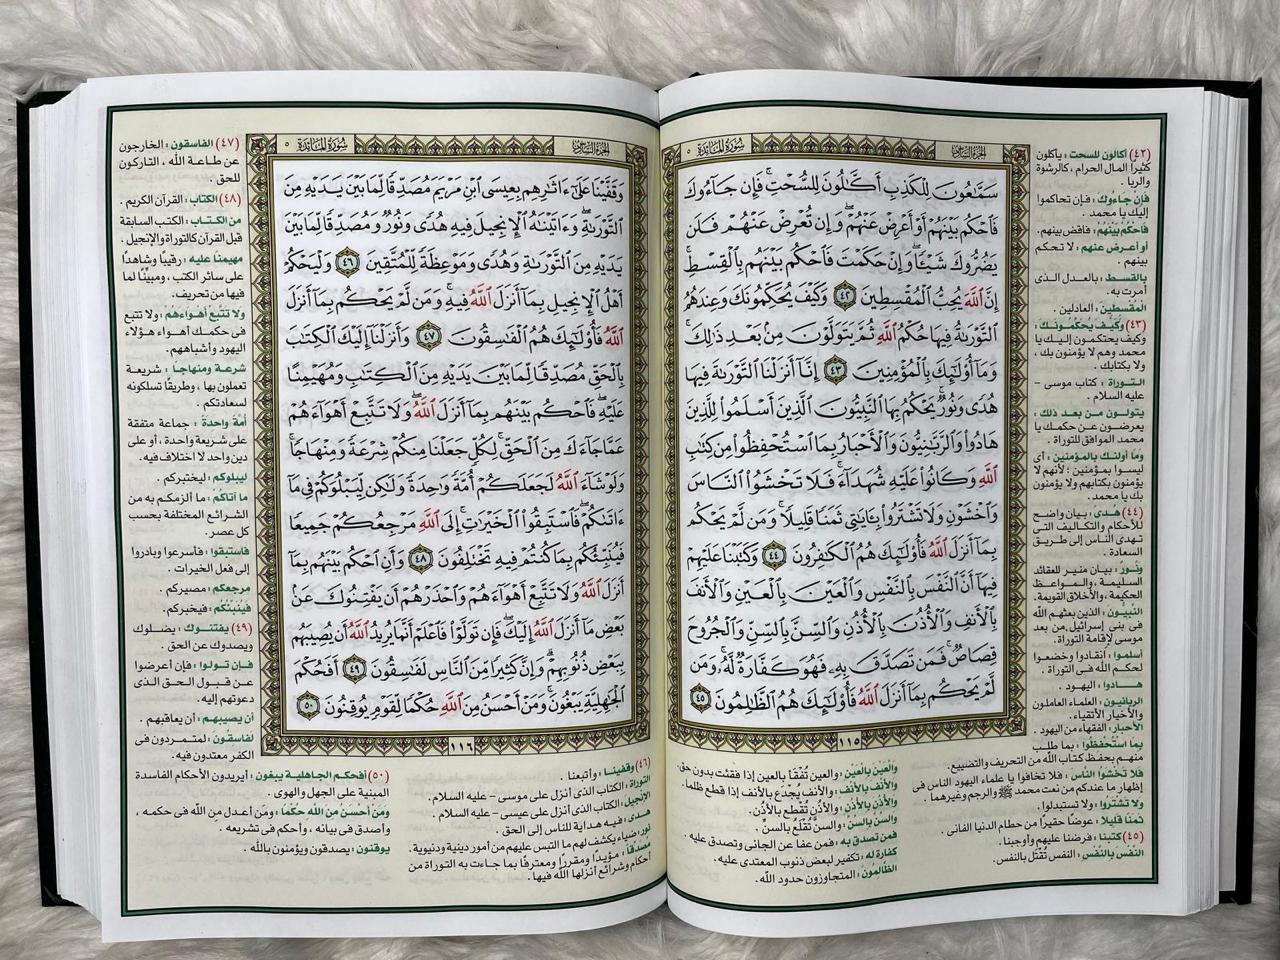 الجزء السادس
سورة المائدة ٥
سَمَّٰعُونَ لِلْكَذِبِ أَكَّٰلُونَ لِلسُّحْتِ ۚ فَإِن جَآءُوكَ
فَٱحْكُم بَيْنَهُمْ أَوْ أَعْرِضْ عَنْهُمْ ۖ وَإِن تُعْرِضْ عَنْهُمْ فَلَن
يَضُرُّوكَ شَيْـًٔا ۖ وَإِنْ حَكَمْتَ فَٱحْكُم بَيْنَهُم بِٱلْقِسْطِ ۚ
إِنَّ ٱللَّهَ يُحِبُّ ٱلْمُقْسِطِينَ ٤٢ وَكَيْفَ يُحَكِّمُونَكَ وَعِندَهُمُ
ٱلتَّوْرَىٰةُ فِيهَا حُكْمُ ٱللَّهِ ثُمَّ يَتَوَلَّوْنَ مِنۢ بَعْدِ ذَٰلِكَ ۚ
وَمَآ أُو۟لَٰٓئِكَ بِٱلْمُؤْمِنِينَ ٤٣ إِنَّآ أَنزَلْنَا ٱلتَّوْرَىٰةَ فِيهَا
هُدًى وَنُورٌ ۚ يَحْكُمُ بِهَا ٱلنَّبِيُّونَ ٱلَّذِينَ أَسْلَمُوا۟ لِلَّذِينَ
هَادُوا۟ وَٱلرَّبَّٰنِيُّونَ وَٱلْأَحْبَارُ بِمَا ٱسْتُحْفِظُوا۟ مِن كِتَٰبِ
ٱللَّهِ وَكَانُوا۟ عَلَيْهِ شُهَدَآءَ ۚ فَلَا تَخْشَوُا۟ ٱلنَّاسَ
وَٱخْشَوْنِ وَلَا تَشْتَرُوا۟ بِـَٔايَٰتِي ثَمَنًا قَلِيلًا ۚ وَمَن لَّمْ يَحْكُم
بِمَآ أَنزَلَ ٱللَّهُ فَأُو۟لَٰٓئِكَ هُمُ ٱلْكَٰفِرُونَ ٤٤ وَكَتَبْنَا عَلَيْهِمْ
فِيهَآ أَنَّ ٱلنَّفْسَ بِٱلنَّفْسِ وَٱلْعَيْنَ بِٱلْعَيْنِ وَٱلْأَنفَ
بِٱلْأَنفِ وَٱلْأُذُنَ بِٱلْأُذُنِ وَٱلسِّنَّ بِٱلسِّنِّ وَٱلْجُرُوحَ
قِصَاصٌ ۚ فَمَن تَصَدَّقَ بِهِۦ فَهُوَ كَفَّارَةٌ لَّهُۥ ۚ وَمَن
لَّمْ يَحْكُم بِمَآ أَنزَلَ ٱللَّهُ فَأُو۟لَٰٓئِكَ هُمُ ٱلظَّٰلِمُونَ ٤٥
١١٥
(٤٢) أكالون للسحت : يأكلون
كثيرًا المال الحرام ، كالرشوة
والربا .
فإن جاءوك : فإن تحاكموا
إليك يا محمد .
فاحكم بينهم : فاقض بينهم .
أو أعرض عنهم : لا تحكم
بينهم .
بالقسط : بالعدل الذى
أمرت به .
المقسطين : العادلين .
(٤٣) وكيف يحكمونك :
وكيف يحتكمون إليك يا
محمد وهم لا يؤمنون بك ،
ولا بكتابك .
التوراة : كتاب موسى -
عليه السلام .
يتولون من بعد ذلك :
يعرضون عن حكمك يا
محمد الموافق للتوراة .
وما أولئك بالمؤمنين : أى
ليسوا بمؤمنين ؛ لأنهم لا
يؤمنون بكتابهم ولا يؤمنون
بك يا محمد .
(٤٤) هدى : بيان واضح
للأحكام والتكاليف التى
تهدى الناس إلى طريق
السعادة .
ونور : بيان منير للعقائد
السليمة ، والمواعظ
الحكيمة ، والأخلاق القويمة .
النبيون : الذين بعثهم الله
فى بنى إسرائيل من بعد
موسى لإقامة التوراة .
أسلموا : انقادوا وخضعوا
لحكم الله فى التوراة .
هادوا : اليهود .
الربانيون : العلماء العاملون
والأخيار الأتقياء .
الأحبار : الفقهاء من اليهود .
بما استحفظوا : بما طلب
منهم بحفظ كتاب الله من التحريف والتضييع .
فلا تخشوا الناس : فلا تخافوا يا علماء اليهود الناس فى
إظهار ما عندكم من نعت محمد ﷺ والرجم وغيرهما .
ولا تشتروا : ولا تستبدلوا .
ثمنا قليلا : عوضًا حقيرًا من حطام الدنيا الفانى .
(٤٥) كتبنا : فرضنا عليهم وأوجبنا .
النفس بالنفس : النفس تُقتَل بالنفس .
والعين بالعين : والعين تُفقأ بالعين إذا فقئت بدون حق .
والأنف بالأنف : والأنف يُجدَع بالأنف إذا قطع ظلما .
والأذن بالأذن : والأذن تُقطع بالأذن .
والسن بالسن : والسن تُقلَع بالسن .
فمن تصدق به : فمن عفا عن الجانى وتصدق عليه .
كفارة له : تكفير لبعض ذنوب المعتدى عليه .
الظالمون : المتجاوزون حدود الله .
الجزء السادس
سورة المائدة ٥
وَقَفَّيْنَا عَلَىٰٓ ءَاثَٰرِهِم بِعِيسَى ٱبْنِ مَرْيَمَ مُصَدِّقًا لِّمَا بَيْنَ يَدَيْهِ مِنَ
ٱلتَّوْرَىٰةِ ۖ وَءَاتَيْنَٰهُ ٱلْإِنجِيلَ فِيهِ هُدًى وَنُورٌ وَمُصَدِّقًا لِّمَا بَيْنَ
يَدَيْهِ مِنَ ٱلتَّوْرَىٰةِ وَهُدًى وَمَوْعِظَةً لِّلْمُتَّقِينَ ٤٦ وَلْيَحْكُمْ
أَهْلُ ٱلْإِنجِيلِ بِمَآ أَنزَلَ ٱللَّهُ فِيهِ ۚ وَمَن لَّمْ يَحْكُم بِمَآ أَنزَلَ
ٱللَّهُ فَأُو۟لَٰٓئِكَ هُمُ ٱلْفَٰسِقُونَ ٤٧ وَأَنزَلْنَآ إِلَيْكَ ٱلْكِتَٰبَ
بِٱلْحَقِّ مُصَدِّقًا لِّمَا بَيْنَ يَدَيْهِ مِنَ ٱلْكِتَٰبِ وَمُهَيْمِنًا
عَلَيْهِ ۖ فَٱحْكُم بَيْنَهُم بِمَآ أَنزَلَ ٱللَّهُ ۖ وَلَا تَتَّبِعْ أَهْوَآءَهُمْ
عَمَّا جَآءَكَ مِنَ ٱلْحَقِّ ۚ لِكُلٍّ جَعَلْنَا مِنكُمْ شِرْعَةً وَمِنْهَاجًا ۚ
وَلَوْ شَآءَ ٱللَّهُ لَجَعَلَكُمْ أُمَّةً وَٰحِدَةً وَلَٰكِن لِّيَبْلُوَكُمْ فِي مَآ
ءَاتَىٰكُمْ ۖ فَٱسْتَبِقُوا۟ ٱلْخَيْرَٰتِ ۚ إِلَى ٱللَّهِ مَرْجِعُكُمْ جَمِيعًا
فَيُنَبِّئُكُم بِمَا كُنتُمْ فِيهِ تَخْتَلِفُونَ ٤٨ وَأَنِ ٱحْكُم بَيْنَهُم بِمَآ
أَنزَلَ ٱللَّهُ وَلَا تَتَّبِعْ أَهْوَآءَهُمْ وَٱحْذَرْهُمْ أَن يَفْتِنُوكَ عَنۢ
بَعْضِ مَآ أَنزَلَ ٱللَّهُ إِلَيْكَ ۖ فَإِن تَوَلَّوْا۟ فَٱعْلَمْ أَنَّمَا يُرِيدُ ٱللَّهُ أَن يُصِيبَهُم
بِبَعْضِ ذُنُوبِهِمْ ۗ وَإِنَّ كَثِيرًا مِّنَ ٱلنَّاسِ لَفَٰسِقُونَ ٤٩ أَفَحُكْمَ
ٱلْجَٰهِلِيَّةِ يَبْغُونَ ۚ وَمَنْ أَحْسَنُ مِنَ ٱللَّهِ حُكْمًا لِّقَوْمٍ يُوقِنُونَ ٥٠
١١٦
(٤٦) وقفينا : وأتبعنا .
التوراة : الكتاب الذى أنزل على موسى - عليه السلام .
الإنجيل : الكتاب الذى أنزل على عيسى - عليه السلام .
هدى : فيه هداية للناس إلى الحق .
نور : ضياء يكشف لهم ما التبس عليهم من أمور دينية ودنيوية .
مصدقا : مؤيدا ومقررا ومعترفا بما جاءت به التوراة من
أحكام وشرائع أنزلها الله فيها .
(٤٧) الفاسقون : الخارجون
عن طاعة الله ، التاركون
للحق .
(٤٨) الكتاب : القرآن الكريم .
من الكتاب : الكتب السابقة
قبل القرآن كالتوراة والإنجيل .
مهيمنا عليه : رقيبًا وشاهدًا
على سائر الكتب ، ومبينًا لما
فيها من تحريف .
ولا تتبع أهواءهم : ولا تتبع
فى حكمك أهواء هؤلاء
اليهود وأشباههم .
شرعة ومنهاجا : شريعة
تعملون بها ، وطريقًا تسلكونه
لسعادتكم .
أمة واحدة : جماعة متفقة
على شريعة واحدة ، أو على
دين واحد لا اختلاف فيه .
ليبلوكم : ليختبركم .
ما آتاكم : ما ألزمكم به من
الشرائع المختلفة بحسب
كل عصر .
فاستبقوا : فأسرعوا وبادروا
إلى فعل الخيرات .
مرجعكم : مصيركم .
فينبئكم : فيخبركم .
(٤٩) يفتنوك : يضلوك
ويصدوك عن الحق .
فإن تولوا : فإن أعرضوا
عن قبول الحق الذى
دعوتهم إليه .
أن يصيبهم : أن يعاقبهم .
لفاسقون : لمتمردون فى
الكفر معتدون فيه .
(٥٠) أفحكم الجاهلية يبغون : أيريدون الأحكام الفاسدة
المبنية على الجهل والهوى .
ومن أحسن من الله حكما : ومن أعدل من الله فى حكمه ،
وأصدق فى بيانه ، وأحكم فى تشريعه .
يوقنون : يصدقون ويؤمنون بالله .